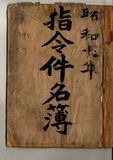 昭和六年
指令件名簿